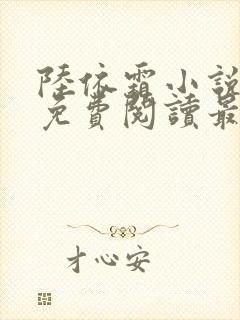 陸依霜小說
免費閱讀最
才心安